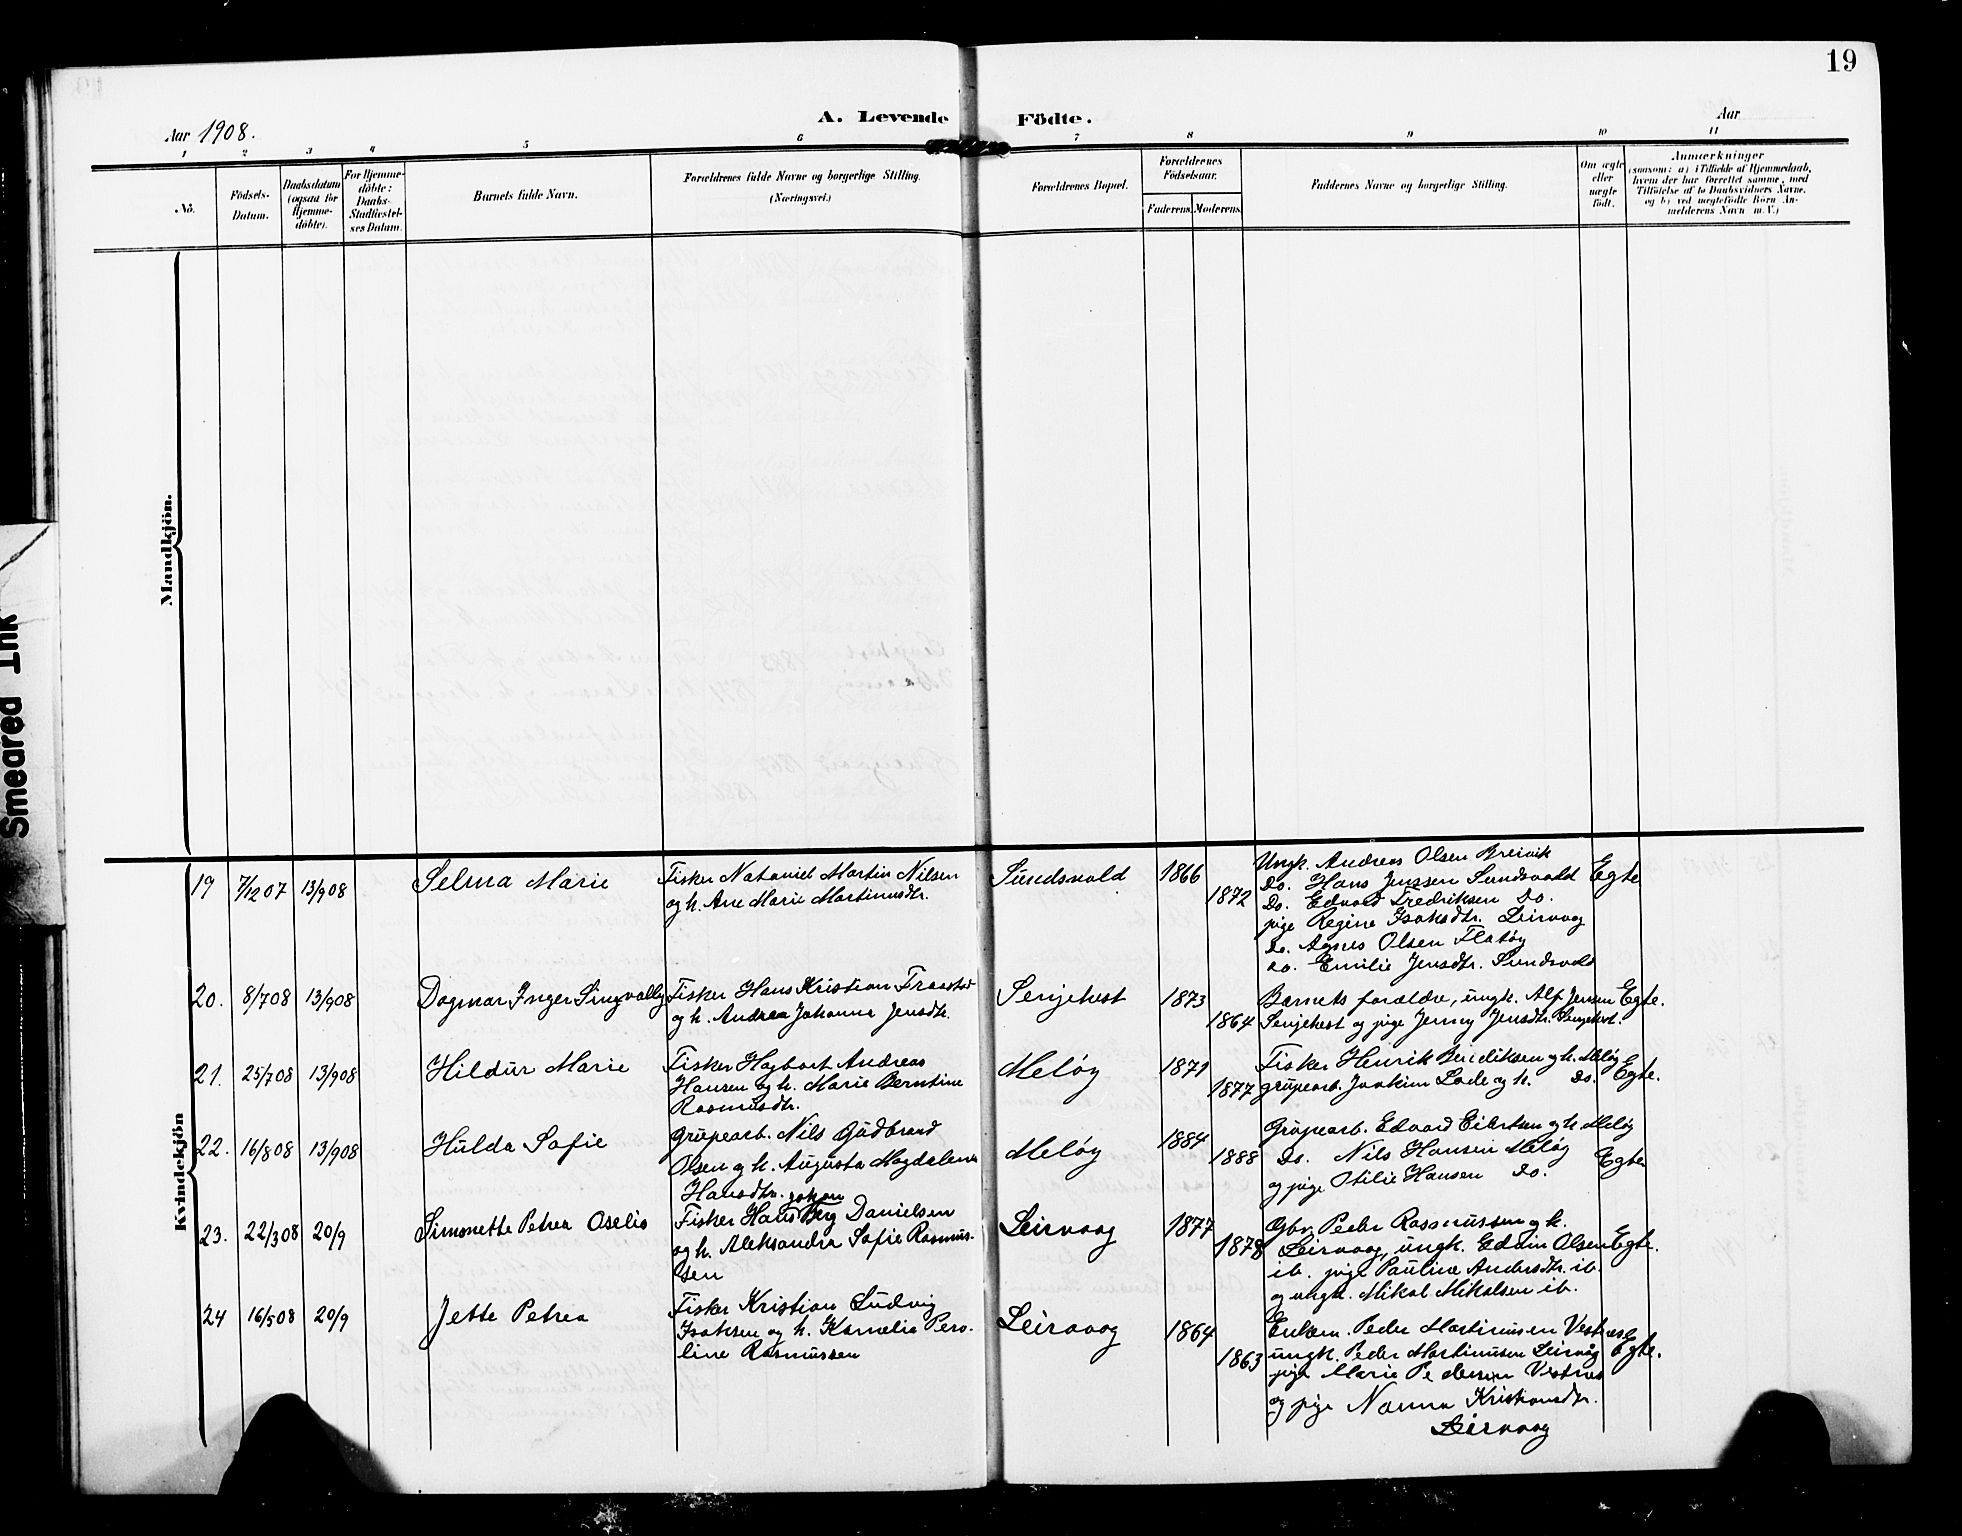 19
A. Levende Födte.
Aar 1908.
Aar
1 2 3 4 5 6 7 8 9 10 11
No.
Födsels-
Datum.
Daabsdatum
(ogsaa for
Hjemme-
döbte).
For Hjemme-
döbte:
Daabs-
Stadfæstel-
ses Datum.
Barnets fulde Navn.
Forældrenes fulde Navne og borgerlige Stilling.
(Næringsvei.)
Forældrenes Bopæl.
Forældrenes
Födselsaar.
Faderens. Moderens.
Faddernes Navne og borgerlige Stilling.
Om ægte
eller
uægte
født.
Anmærkninger
(saasom: a) i Tilfælde af Hjemmedaab,
hvem der har forrettet samme, med
Tilföielse af to Daabsvidners Navne,
og b) ved uægtefödte Börn An-
melderens Navn m. V.)
Mandkjön.
Smeared Ink
Kvindekjön
19 7/12 07 13/9 08
Selma Marie
Fisker Nataniel Martin Nilsen
og h. Ane Marie Martinusdtr.
Sundsvold
1866
1872
Ungk. Andreas Olsen Breivik
Do. Hans Jenssen Sundsvold
Do. Edvard Fredriksen Do.
pige Regine Isaksdtr. Leirvaag
Do. Agnes Olsen Flatøy
Do. Emilie Jensdtr. Sundsvold
Egte
20. 8/7 08 13/9 08
Dagmar Inger Singvally
Fisker Hans Kristian
og h. Andrea Johanna Jensdtr.
Senjehest
1873
1864
Barnets forældre, ungk. Alf Jensen
Senjehest og pige Jenny Jensdtr. Senjehest.
Egte.
21. 25/7 08 13/9 08
Hildur Marie
Fisker Hagbart Andreas
Hansen og h. Marie Berntine
Rasmusdtr.
Meløy
1871
1877
Fisker Henrik Benediksen og h. Meløy
grubearb. Joakim Lode og h. Do.
Egte.
22. 16/8 08 13/9 08
Hulda Sofie
Grubearb. Nils Gudbrand
Olsen og h. Augusta Magdalena
Hansdtr.
Meløy
1884
1888
Grubearb. Edvard Eilertsen og h. Meløy
Do. Nils Hansen Meløy
og pige Otilie Hansen Do.
Egte
23. 22/3 08 20/9
Simonette Petrea Oselie
Johan
Fisker Hans Berg Danielsen
og h. Aleksandra Sofie Rasmus-
sen
Leirvaag
1877
1878
Gbr. Peder Rasmussen og h.
Leirvaag, ungk. Edvin Olsen
ib. pige Pauline Andersdtr. ib.
og ungk. Mikal Mikalsen ib.
Egte.
24 16/5 08 20/9
Jette Petrea
Fisker Kristian Ludvig
Isaksen og h. Kornelia Pero-
line Rasmussen
Leirvaag
1864
1863
Enkem. Peder Martinusen Vestnes
ungk. Peder Martinusen Leirvåg
pige Marie Pedersen Vestnes
og pige Nanna Kristiansdtr.
Leirvaag
Egte.